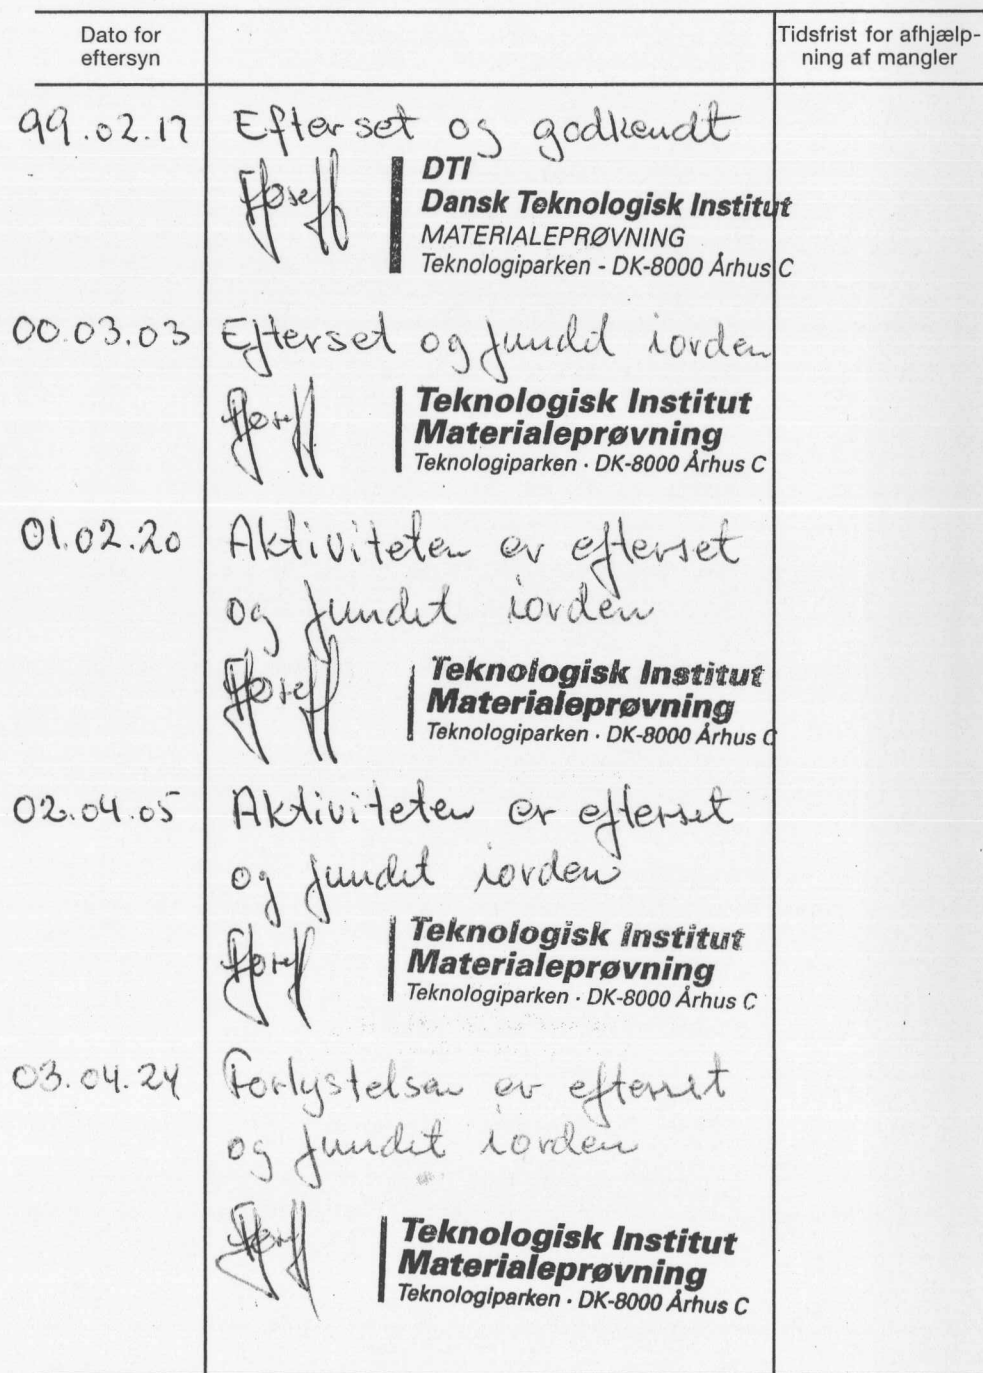 Dato for
eftersyn
Tidsfrist for afhjælp-
ning af mangler
99.02.17 Efterset og godkendt
DTI
Dansk Teknologisk Institut
MATERIALEPRØVNING
Teknologiparken - DK-8000 Århus C
00.03.03 Efterset og fundet iorden
Teknologisk Institut
Materialeprøvning
Teknologiparken · DK-8000 Århus C
01.02.20 Aktiviteten er efterset
og fundet iorden
Teknologisk Institut
Materialeprøvning
Teknologiparken · DK-8000 Århus C
02.04.05 Aktiviteten er efterset
og fundet iorden
Teknologisk Institut
Materialeprøvning
Teknologiparken · DK-8000 Århus C
03.04.24 Forlystelsen er efterset
og fundet iorden
Teknologisk Institut
Materialeprøvning
Teknologiparken · DK-8000 Århus C